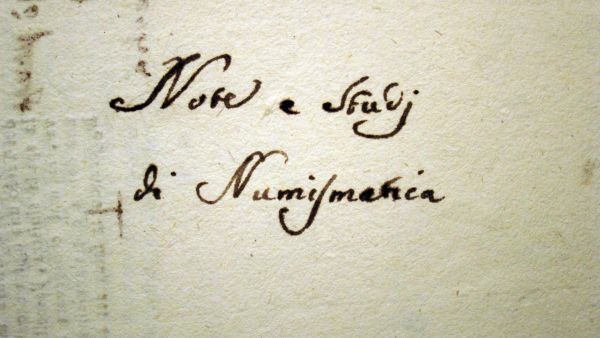 Note e Studj
di Numismatica